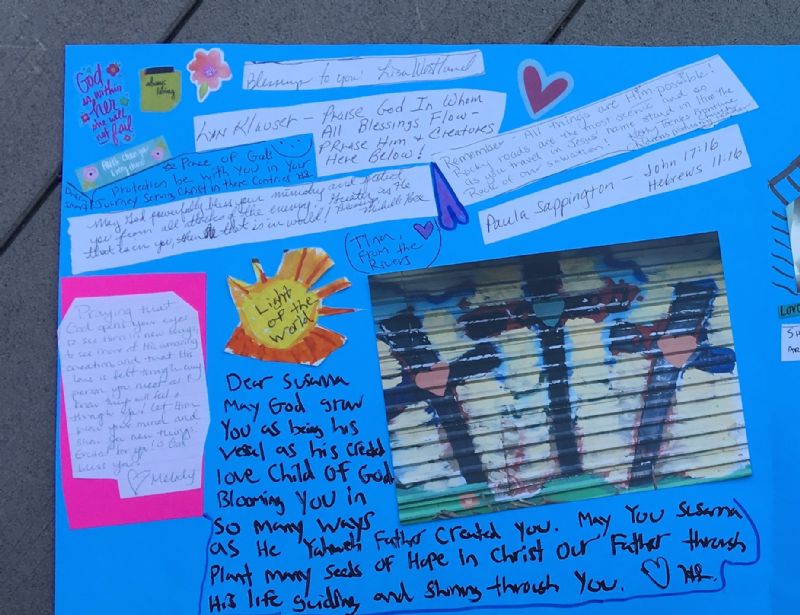 God
is within
her
she will
not
fail
always
Blessings to you! Lisa Westlund
Lyn Klauser - Praise God In Whom
All Blessings Flow -
Praise Him & Creatures
Here Below!
Remember All things are Him possible!
Rocky roads are the most scenic and so
as you travel in Jesus' name stand in Him the
Rock of our salvation!
Paula Sappington - John 17:16
Hebrews 11:16
Peace of God's
Protation be with You in Your
Journey Serving Christ in there Contries
May God powerfully bless your ministry and protect
you from all attacks of the enemy. Greater is He
that is in you, than that is in world!
Tina,
From the
Rivers
Light
of the
World
Praying that
God opens your eyes
to see them in new ways,
to see more of his amazing
creation and that His
love is felt through every
person you meet.
through you! Let Him
bless your mind and
show you new things.
Excited for you! God
bless you.
Melody
Dear Susanna
May God grow
You as being his
Vesal as his created
love Child Of God
Blooming You in
So many ways
as He Yahweh Father Created You. May You Susanna
Plant many seeds of Hope In Christ Our Father through
His life guiding and Shining through You.